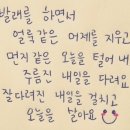 빨래를 하면서
얼룩같은 어제를 지우고
먼지같은 오늘을 털어내고
주름진 내일을 다려요
잘 다려진 내일을 걸치고
오늘을 살아요